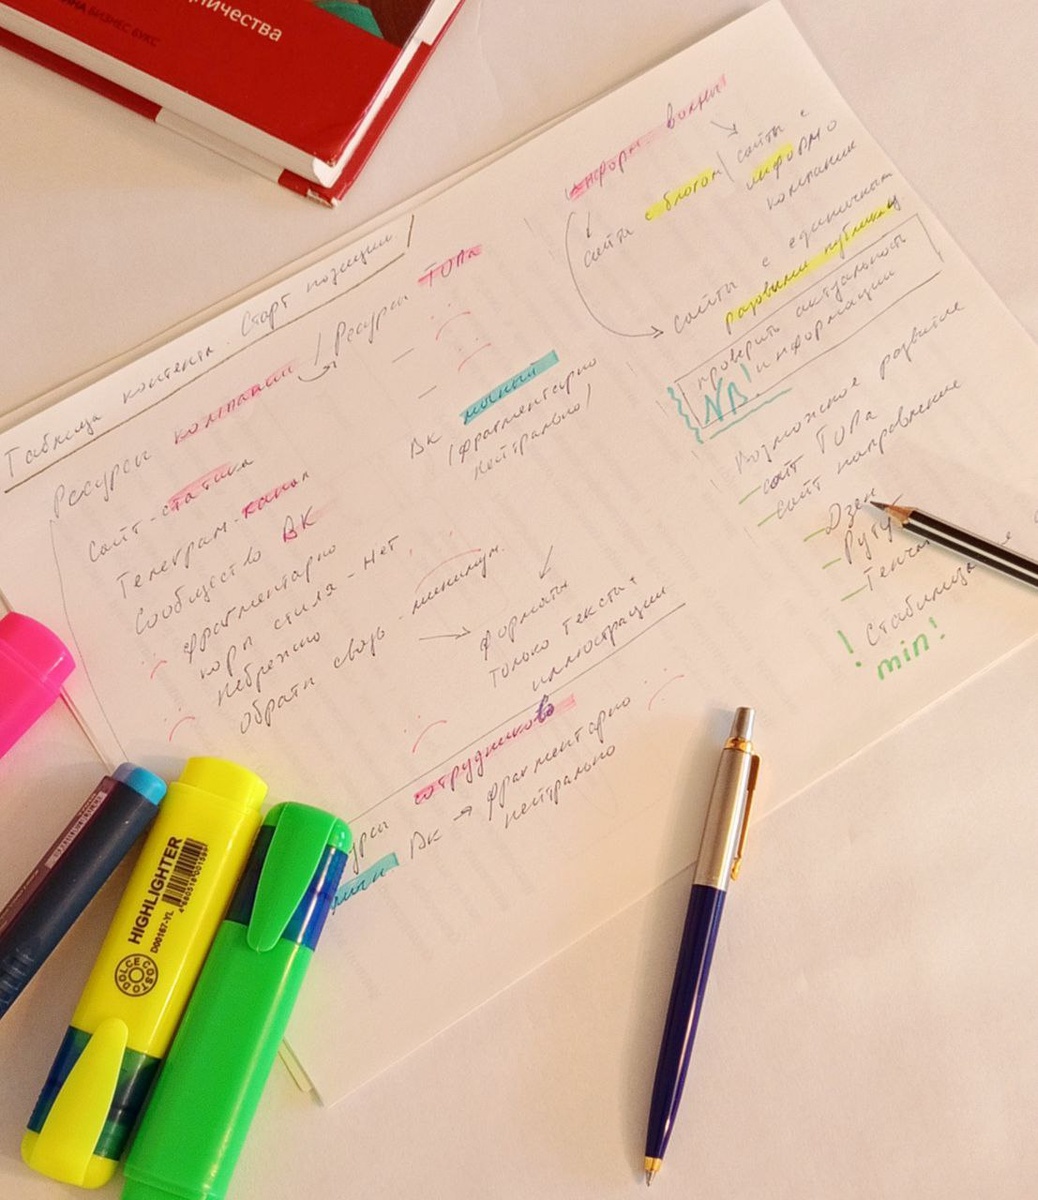 ничества
БИЗНЕС БУКС
Таблица контента. Старт позиции
Ресурсы компании
Сайт - статика
Телеграм-канал
Сообщество ВК
фрагментарно
корп стиля - нет
небрежно
обратн связь - минимум.
Ресурсы ТОПа
ВК личный
(фрагментарно
нейтрально)
форматы
только тексты +
иллюстрации
урсы сотрудников
ВК → фрагментарно
нейтрально
Информ.
сайты с блогом
сайты с
информ о
компании
сайты с единичными
разовыми публикац
проверить актуальность
NB! информации
Возможное развитие
– сайт ТОПа
– сайт направление
– Дзен
– Руту
– Тенча
! Стабилиз
min!
HIGHLIGHTER
D00167-YL
DOLCE COSTO